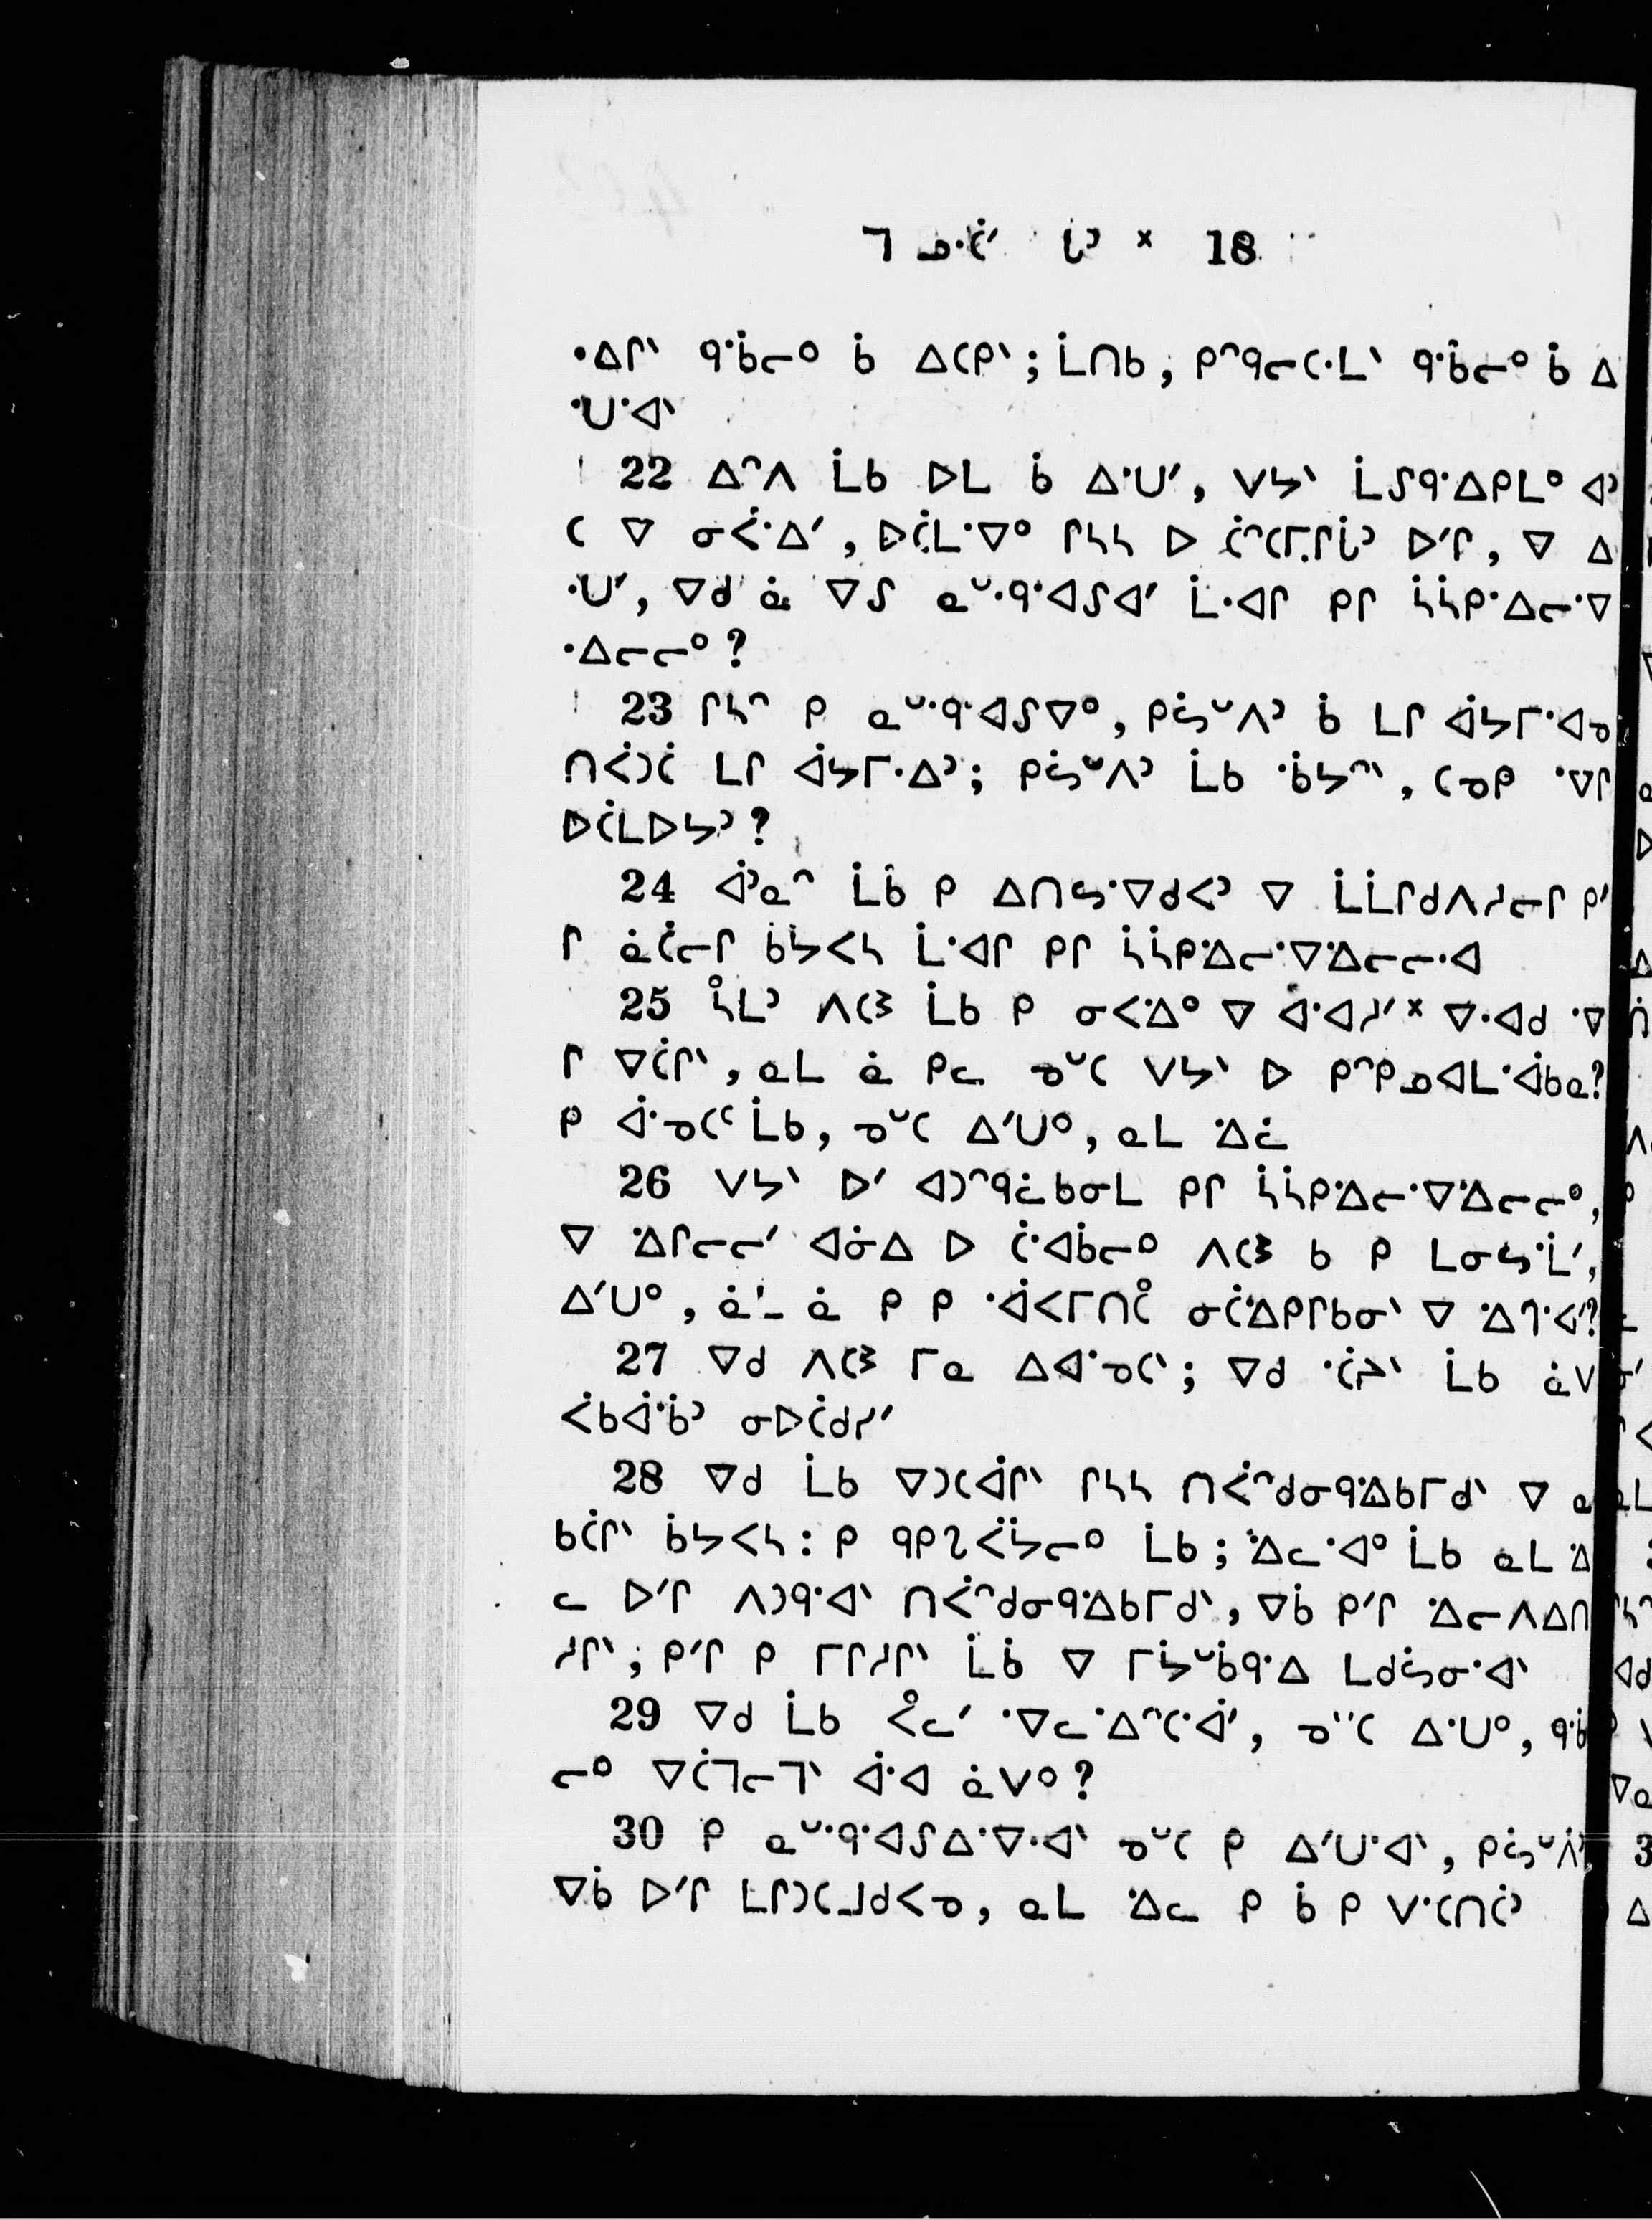 ᒣ ᓅᑖᐟ ᒑᐣ × 18
ᐧᐃᒋᐠ ᑫᐧᑳᓕᐤ ᑳ ᐃᑕᑭᐠ; ᒫᑎᑲ, ᑭᐢᑫᓕᑕᐧᒪᐠ ᑫᐧᑳᓕᐤ ᑳ ᐃ
ᐧᑌᐧᐊᐠ
22 ᐃᐢᐱ ᒫᑲ ᐅᒪ ᑳ ᐃᐧᑌᐟ, ᐯᔭᐠ ᒫᔑᑫᐧᐃᑭᒪᐤ ᐊᐣ
ᑕ ᐁ ᓂᐹᐧᐃᐟ, ᐅᑖᒪᐧᐁᐤ ᒋᓴᓴ ᐅ ᑖᐢᑕᒥᒋᒑᐣ ᐅᐟᒋ, ᐁ ᐃ
ᐧᑌᐟ, ᐁᑯ ᓈ ᐁᔑ ᓇᐡᐧᑫᐧᐊᔑᐊᐟ ᒫᐧᐊᒋ ᑭᒋ ᓵᓵᑭᐧᐃᓕᐧᐁ
ᐧᐃᓕᓕᐤ?
23 ᒋᓴᐢ ᑭ ᓇᐡᐧᑫᐧᐊᔑᐁᐤ, ᑭᔮᐡᐱᐣ ᑳ ᒪᒋ ᐋᔭᒥᐧᐊᓀ
ᑎᐹᑐᑖ ᒪᒋ ᐋᔭᒥᐧᐃᐣ; ᑭᔮᐡᐱᐣ ᒫᑲ ᐧᑳᔭᐢᐠ, ᑕᓀᑭ ᐧᐁᒋ
ᐅᑖᒪᐅᔭᐣ?
24 ᐋᐣᓇᐢ ᒫᑳ ᑭ ᐃᑎᓴᐧᐁᑯᐸᐣ ᐁ ᒫᒫᒋᑯᐱᓱᓕᒋ ᑭᐟ
ᒋ ᓈᑖᓕᒋ ᑳᔭᐸᓴ ᒫᐧᐊᒋ ᑭᒋ ᓵᓵᑭᐧᐃᓕᐧᐁᐧᐃᓕᓕᐧᐊ
25 ᓵᒪᐣ ᐱᑕᕒ ᒫᑲ ᑭ ᓂᐸᐧᐃᐤ ᐁ ᐊᐧᐊᓱᐟ× ᐁᐧᐊᑯ ᐧᐁ
ᒋ ᐁᑖᒋᐠ, ᓇᒪ ᓈ ᑭᓚ ᓀᐡᑕ ᐯᔭᐠ ᐅ ᑭᐢᑭᓄᐊᒪᐧᐋᑲᓇ?
ᑭ ᐋᐧᓀᑕᑦ ᒫᑲ, ᓀᐡᑕ ᐃᐟᑌᐤ, ᓇᒪ ᐧᐃᓛ
26 ᐯᔭᐠ ᐅᐟ ᐊᑐᐢᑫᓛᑲᓂᒪ ᑭᒋ ᓵᓵᑭᐧᐃᓕᐧᐁᐧᐃᓕᓕᐤ,
ᐁ ᐧᐃᒋᓕᓕᐟ ᐊᓃᐃ ᐅ ᑖᐧᐊᑳᓕᐤ ᐱᑕᕒ ᑲ ᑭ ᒪᓂᓴᐧᒫᐟ,
ᐃᐟᑌᐤ, ᓈ ᑭ ᑭ ᐧᐋᐸᒥᑎᑖ ᓂᑖᐧᐃᑭᒋᑲᓂᐠ ᐁ ᐧᐃᒉᐧᐊᐟ?
27 ᐁᑯ ᐱᑕᕒ ᒥᓇ ᐃᐊᐧᓀᑕᐠ; ᐁᑯ ᐧᑖᔨᐠ ᒫᑲ ᓈᐯ
ᐹᑲᐋᐧᑳᐣ ᓂᐅᑖᑯᓯᐟ
28 ᐁᑯ ᒫᑲ ᐁᑐᑕᐋᒋᐠ ᒋᓴᓴ ᑎᐹᐢᑯᓂᑫᐧᐃᑲᒥᑯᐠ ᐁ ᓇ
ᑲᑖᒋᐠ ᑳᔭᐸᓴ: ᑭ ᑫᑭᔐᐹᔭᓕᐤ ᒫᑲ; ᐧᐃᓚᐧᐊᐤ ᒫᑲ ᓇᒪ ᐧᐃ
ᓚ ᐅᐟᒋ ᐱᑐᑫᐧᐊᐠ ᑎᐹᐢᑯᓂᑫᐧᐃᑲᒥᑯᐠ, ᐁᑳ ᑭᐟᒋ ᐧᐃᓕᐱᐃᑎ
ᓱᒋᐠ; ᑭᐟᒋ ᑭ ᒥᒋᓱᒋᐠ ᒫᑳ ᐁ ᒥᔮᐡᑳᑫᐧᐃ ᒪᑯᔮᓂᐧᐊᐠ
29 ᐁᑯ ᒫᑲ ᐹᓚᐟ ᐧᐁᓚᐧᐃᐢᑕᐧᐋᐟ, ᓀᐡᑕ ᐃᐧᑌᐤ, ᑫᐧᑳ
ᓕᐤ ᐁᑖᒣᓕᒣᐠ ᐋᐧᐊ ᓈᐯᐤ?
30 ᑭ ᓇᐡᐧᑫᐧᐊᔑᐃᐧᐁᐧᐊᐠ ᓀᐡᑕ ᑭ ᐃᐟᑌᐧᐊᐠ, ᑭᔮᐡᐱᐣ
ᐁᑳ ᐅᐟᒋ ᒪᒋᑐᑕᒧᑯᐸᓀ, ᓇᒪ ᐧᐃᓚ ᑭ ᑳ ᑭ ᐯᐧᑕᑎᑖᐣ